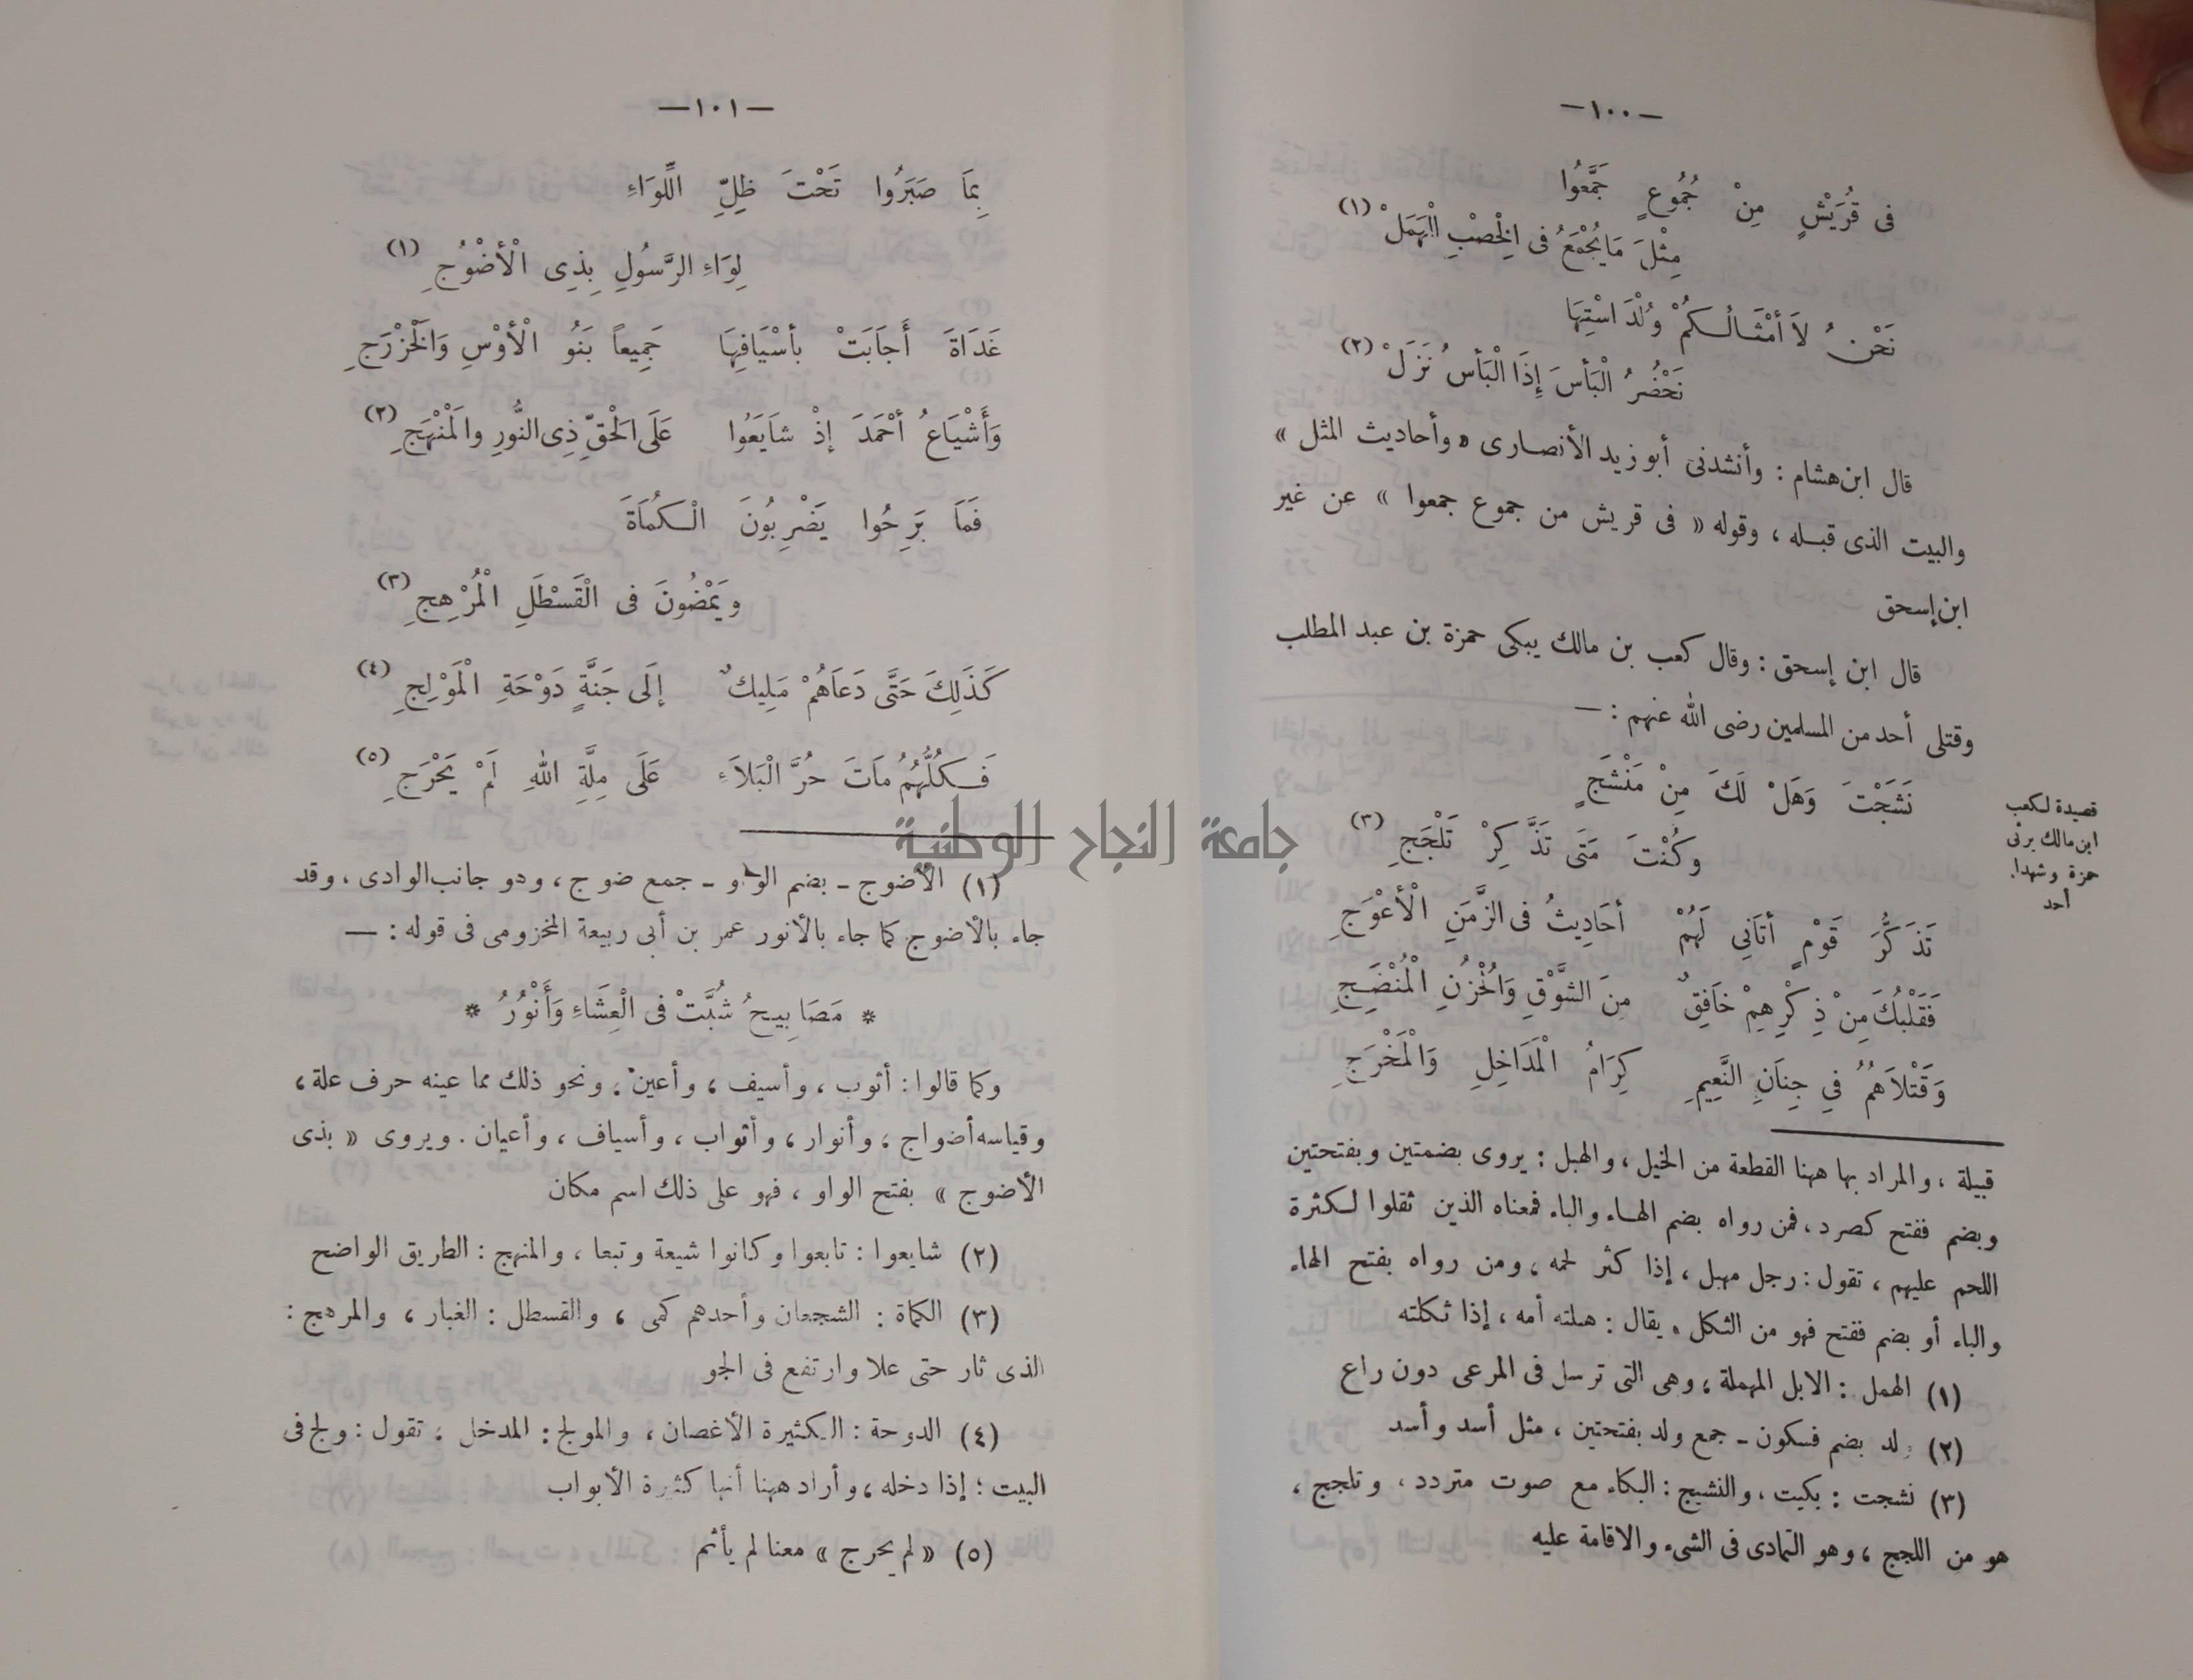 —١٠٠—
فى قُرَيْشٍ مِنْ جُمُوعٍ جَمَّعُوا
مِثْلَ مَا يُجْمَعُ فى الْخِصْبِ الْهَمَلْ (١)
نَحْنُ لاَ أمْثَالُكُمْ وُلْدَ اسْتِهَا
نَحْضُرُ الْبَأسَ إِذَا الْبَأسُ نَزَلْ (٢)
قال ابن هشام : وأنشدنى أبو زيد الأنصارى « وأحاديث المثل »
والبيت الذى قبله ، وقوله « فى قريش من جموع جمعوا » عن غير
ابن إسحق
قال ابن إسحق : وقال كعب بن مالك يبكى حمزة بن عبد المطلب
وقتلى أحد من المسلمين رضى الله عنهم : —
قصيدة لكعب
ابن مالك يرثى
حمزة وشهداء
أحد
نَشَجْتَ وَهَلْ لَكَ مِنْ مَنْشَجٍ
وكُنْتَ مَتَى تَذَّكِرْ تَلْجَجِ (٣)
تَذَكُّرَ قَوْمٍ أتَانِي لَهُمْ أحَادِيثُ فى الزَّمَنِ الْأعْوَجِ
فَقَلْبُكَ مِنْ ذِكْرِهِمْ خَافِقٌ مِنَ الشَّوْقِ وَالْحُزْنِ الْمُنْضِجِ
وَقَتْلاَهُمُ فِي جِنَانِ النَّعِيمِ كِرَامُ الْمَدَاخِلِ وَالْمَخْرَجِ
قبيلة ، والمراد بها ههنا القطعة من الخيل ، والهبل : يروى بضمتين وبفتحتين
وبضم ففتح كصرد ، فمن رواه بضم الهاء والباء فمعناه الذين ثقلوا لكثرة
اللحم عليهم ، تقول : رجل مهبل ، إذا كثر لحمه ، ومن رواه بفتح الهاء
والباء أو بضم ففتح فهو من الثكل . يقال : هبلته أمه ، إذا ثكلته
(١) الهمل : الابل المهملة ، وهى التى ترسل فى المرعى دون راع
(٢) ولد بضم فسكون - جمع ولد بفتحتين ، مثل أسد وأسد
(٣) نشجت : بكيت ، والنشيج : البكاء مع صوت متردد ، وتلجج ،
هو من اللجج ، وهو التمادى فى الشىء والاقامة عليه
—١٠١—
بِمَا صَبَرُوا تَحْتَ ظِلِّ اللِّوَاءِ
لِوَاءِ الرَّسُولِ بِذِى الْأضْوُجِ (١)
غَدَاةَ أَجَابَتْ بأسْيَافِهَا جَمِيعاً بَنُو الْأوْسِ وَالْخَزْرَجِ
وَأَشْيَاعُ أحْمَدَ إذْ شَايَعُوا عَلَى الْحَقِّ ذِى النُّورِ والْمَنْهَجِ (٢)
فَمَا بَرِحُوا يَضْرِبُونَ الْكُمَاةَ
ويَمْضُونَ فى الْقَسْطَلِ الْمُرْهِجِ (٣)
كَذَلِكَ حَتَّى دَعَاهُمْ مَلِيكٌ إلَى جَنَّةٍ دَوْحَةِ الْمَوْلِجِ (٤)
فَكُلُّهُمُ مَاتَ حُرَّ الْبَلاَءِ عَلَى مِلَّةِ اللهِ لَمْ يَحْرَجِ (٥)
جامعة النجاح الوطنية
(١) الأضوج - بضم الواو - جمع ضوج ، وهو جانب الوادى ، وقد
جاء بالأضوج كما جاء بالأنور عمر بن أبى ربيعة المخزومى فى قوله : —
* مَصَابِيحُ شُبَّتْ فى الْعِشَاءِ وَأَنْوُرُ *
وكما قالوا : أثوب ، وأسيف ، وأعين ، ونحو ذلك مما عينه حرف علة ،
وقياسه أضواج ، وأنوار ، وأثواب ، وأسياف ، وأعيان . ويروى « بذى
الأضوج » بفتح الواو ، فهو على ذلك اسم مكان
(٢) شايعوا : تابعوا وكانوا شيعة وتبعا ، والمنهج : الطريق الواضح
(٣) الكماة : الشجعان وأحدهم كمى ، والقسطل : الغبار ، والمرهج :
الذى ثار حتى علا وارتفع فى الجو
(٤) الدوحة : الكثيرة الأغصان ، والمولج : المدخل ، تقول : ولج فى
البيت : إذا دخله ، وأراد ههنا أنها كثيرة الأبواب
(٥) « لم يحرج » معنا لم يأثم